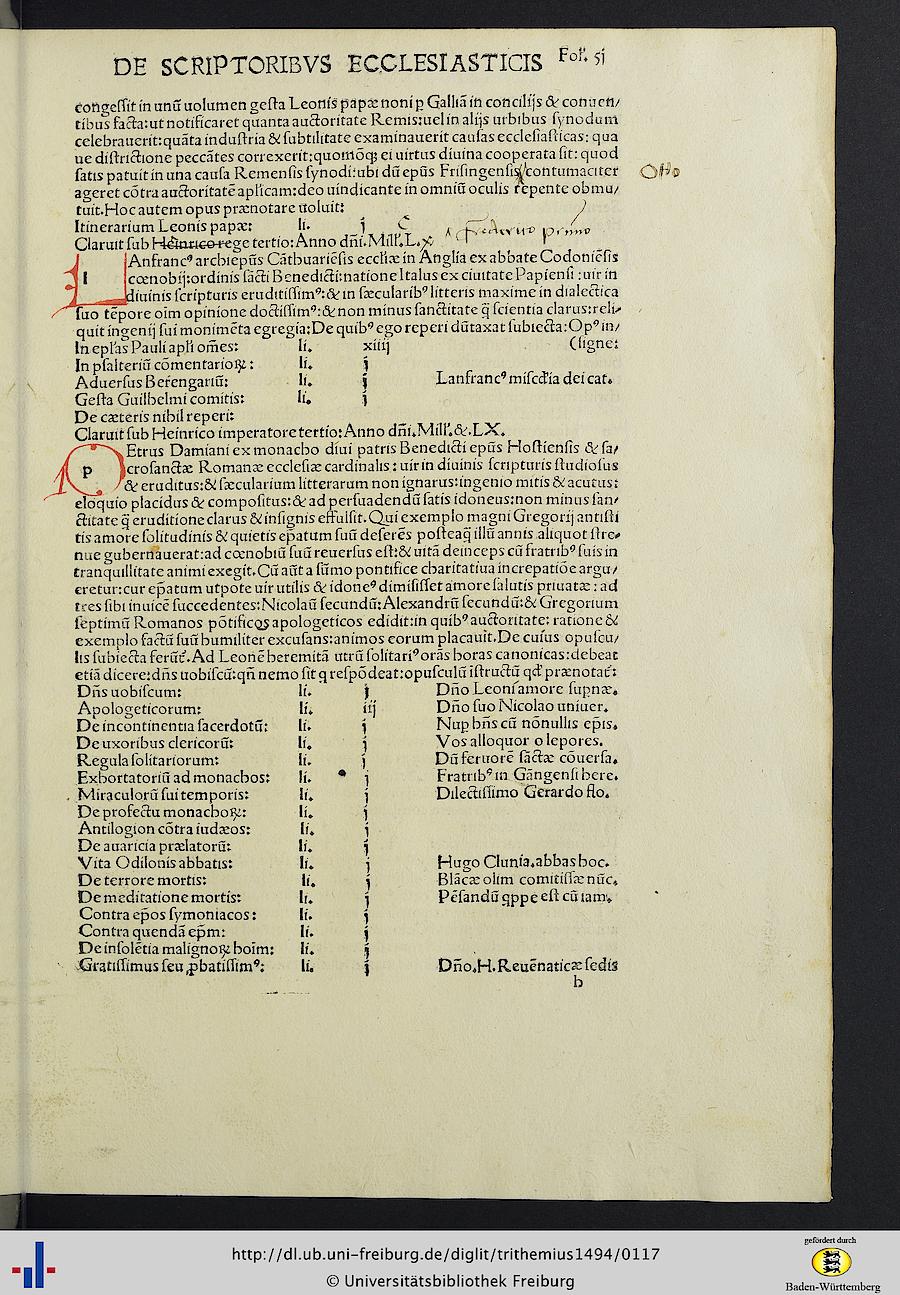 DE SCRIPTORIBVS ECCLESIASTICIS Fol. 51
congessit in unū uolumen gesta Leonis papæ noni p Galliā in concilijs & conuen/
tibus facta: ut notificaret quanta auctoritate Remis: uel in alijs urbibus synodum
celebrauerit: quāta industria & subtilitate examinauerit causas ecclesiasticas: qua
ue districtione peccātes correxerit: quomōqȝ ei uirtus diuina cooperata sit: quod
satis patuit in una causa Remensis synodi: ubi dū epūs Frisingensis contumaciter
Otto
ageret cōtra auctoritatē aplicam: deo uindicante in omniū oculis repente obmu/
tuit. Hoc autem opus prænotare uoluit:
Itinerarium Leonis papæ: li. j
Claruit sub Heinrico rege tertio: Anno dñi. Mill. L.x
frederico primo
LAnfrancꝰ archiepūs Cātbuariēsis eccliæ in Anglia ex abbate Codoniēsis
cœnobij: ordinis sācti Benedicti: natione Italus ex ciuitate Papiensi: uir in
diuinis scripturis eruditissimꝰ: & in sæcularibꝰ litteris maxime in dialectica
suo tēpore oīm opinione doctissimꝰ: & non minus sanctitate q̄ scientia clarus: reli-
quit ingenij sui monimēta egregia: De quibꝰ ego reperi dūtaxat subiecta: Opꝰ in/
In eplas Pauli apli omēs: li. xiiij (signe:
In psalteriū cōmentarioꝝ: li. j
Aduersus Berengariū: li. j Lanfrancꝰ miscdia dei cat.
Gesta Guilhelmi comitis: li. j
De cæteris nihil reperi:
Claruit sub Heinrico imperatore tertio: Anno dñi. Mill. &. LX.
PEtrus Damiani ex monacho diui patris Benedicti epūs Hostiensis & sa/
crosanctæ Romanæ ecclesiæ cardinalis: uir in diuinis scripturis studiosus
& eruditus: & sæcularium litterarum non ignarus: ingenio mitis & acutus:
eloquio placidus & compositus: & ad persuadendū satis idoneus: non minus san/
ctitate q̄ eruditione clarus & insignis effulsit. Qui exemplo magni Gregorij antisti
tis amore solitudinis & quietis epatum suū deserēs postea q̄ illū annis aliquot stre-
nue gubernauerat: ad cœnobiū suū reuersus est: & uitā deinceps cū fratribꝰ suis in
tranquillitate animi exegit. Cū aūt a sūmo pontifice charitatiua increpatiōe argu/
eretur: cur epatum utpote uir utilis & idoneꝰ dimisisset amore salutis priuatæ: ad
tres sibi inuicē succedentes: Nicolaū secundū: Alexandrū secundū: & Gregorium
septimū Romanos pōtifices apologeticos edidit: in quibꝰ auctoritate: ratione &
exemplo factū suū humiliter excusans: animos eorum placauit. De cuius opuscu/
lis subiecta ferūt. Ad Leonē heremitā utrū solitariꝰ orās horas canonicas: debeat
etiā dicere: dñs uobiscū: qñ nemo sit q respōdeat: opusculū īstructū qd prænotat:
Dñs uobiscum: li. j Dño Leoni amore supnæ.
Apologeticorum: li. iij Dño suo Nicolao uniuer.
De incontinentia sacerdotū: li. j Nup hñs cū nōnullis epis.
De uxoribus clericorū: li. j Vos alloquor o lepores.
Regula solitariorum: li. j Dū feruorē sāctæ cōuersa.
Exhortatoriū ad monachos: li. j Fratribꝰ in Gāngensi here.
Miraculorū sui temporis: li. j Dilectissimo Gerardo flo.
De profectu monachoꝝ: li. j
Antilogion cōtra iudæos: li. j
De auaricia prælatorū: li. j
Vita Odilonis abbatis: li. j Hugo Clunia. abbas hoc.
De terrore mortis: li. j Blācæ olim comitissæ nūc.
De meditatione mortis: li. j Pēsandū qppe est cū iam.
Contra epōs symoniacos: li. j
Contra quendā epm: li. j
De insolētia malignoꝝ hoīm: li. j
Gratissimus seu pbatissimꝰ: li. j Dño. H. Reuēnaticæ sedis
h
http://dl.ub.uni-freiburg.de/diglit/trithemius1494/0117
© Universitätsbibliothek Freiburg
gefördert durch
Baden-Württemberg